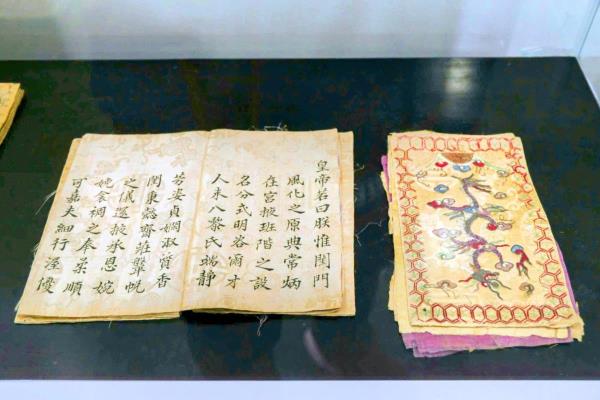 皇帝若曰朕惟閨門
風化之原典常炳
在宮掖班階之設
名分式明咨爾才
人未八黎氏端靜
芳姿貞嫻淑質香
秉懿齋莊鞶帨
之儀選掖承恩婉
娩衾裯之奉柔順
可嘉夫細行渥優